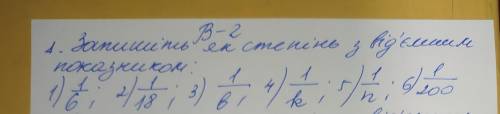 В-2
1. Запишіть як степінь з від'ємним
показником:
1) 1/6; 2) 1/18; 3) 1/в; 4) 1/k; 5) 1/n; 6) 1/200